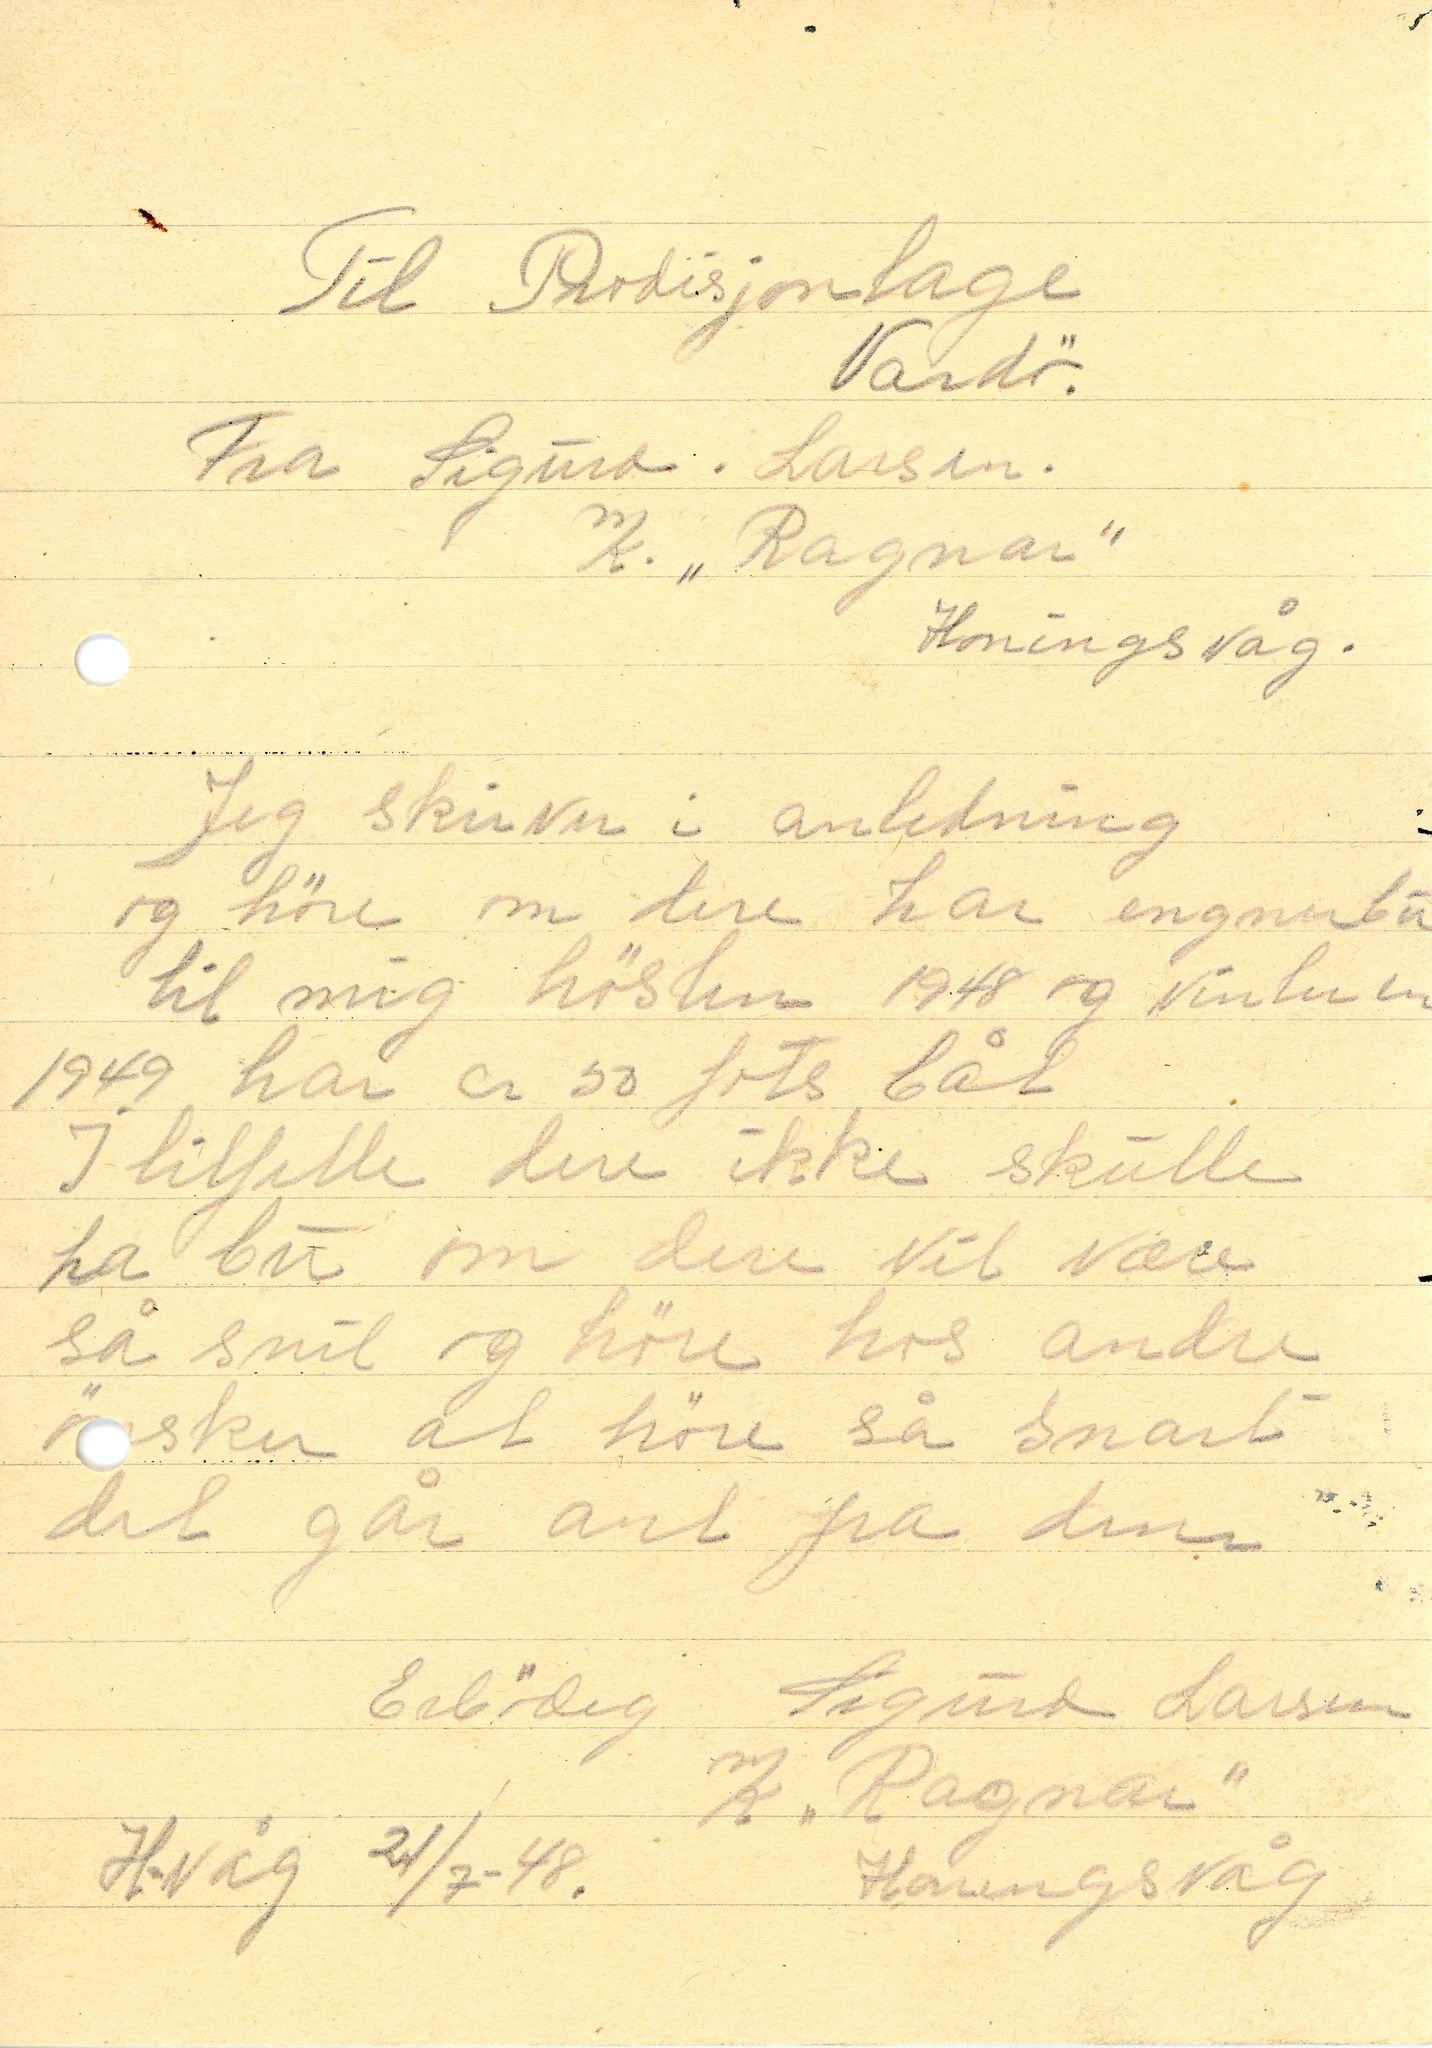 Til Prodisjonlage
Vardö.
Fra Sigurd. Larsen.
M/K. „Ragnar"
Honingsvåg.
Jeg skirver i anledning
og höre om dere har engnerbu
til mig hösten 1948 og vinteren
1949. har en 50 fots båt
I tilfelle dere ikke skulle
ha bu om dere vil være
så snil og höre hos andre
önsker at höre så snart
det går ant fra dere
Erbödig Sigurd Larsen
M/K „Ragnar"
H-våg 21/7-48. Honingsvåg